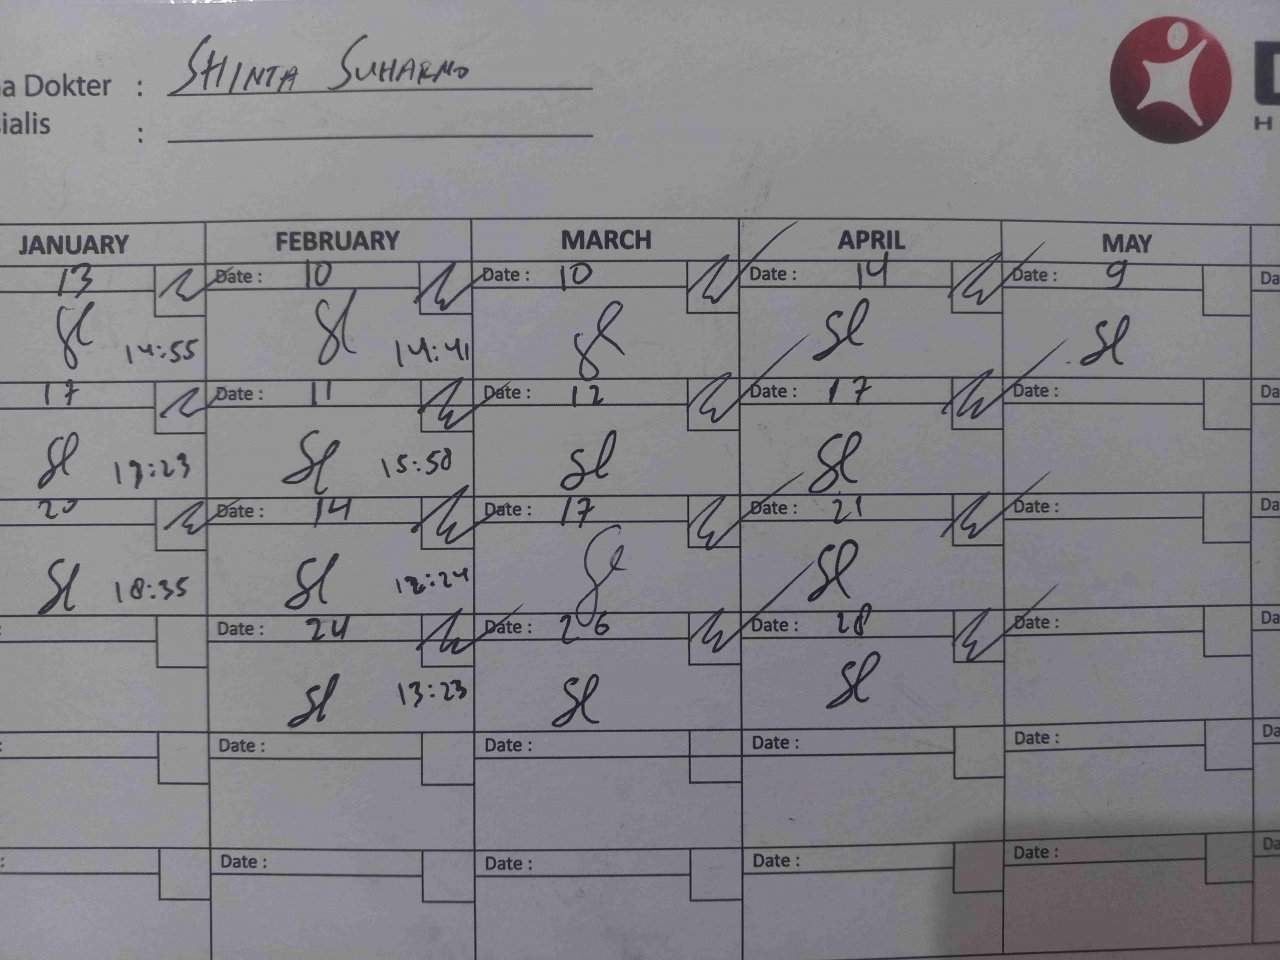 a Dokter : SHINTA SUHARNO
ialis :
JANUARY FEBRUARY MARCH APRIL MAY
13 Date : 10 Date : 10 Date : 14 Date : 9 Da
14:55 14:41
17 Date : 11 Date : 12 Date : 17 Date : Da
15:58
20 Date : 14 Date : 17 Date : 21 Date : Da
18:35
: Date : 24 Date : 26 Date : 28 Date : Da
13:23
: Date : Date : Date : Date : Da
: Date : Date : Date : Date : Da